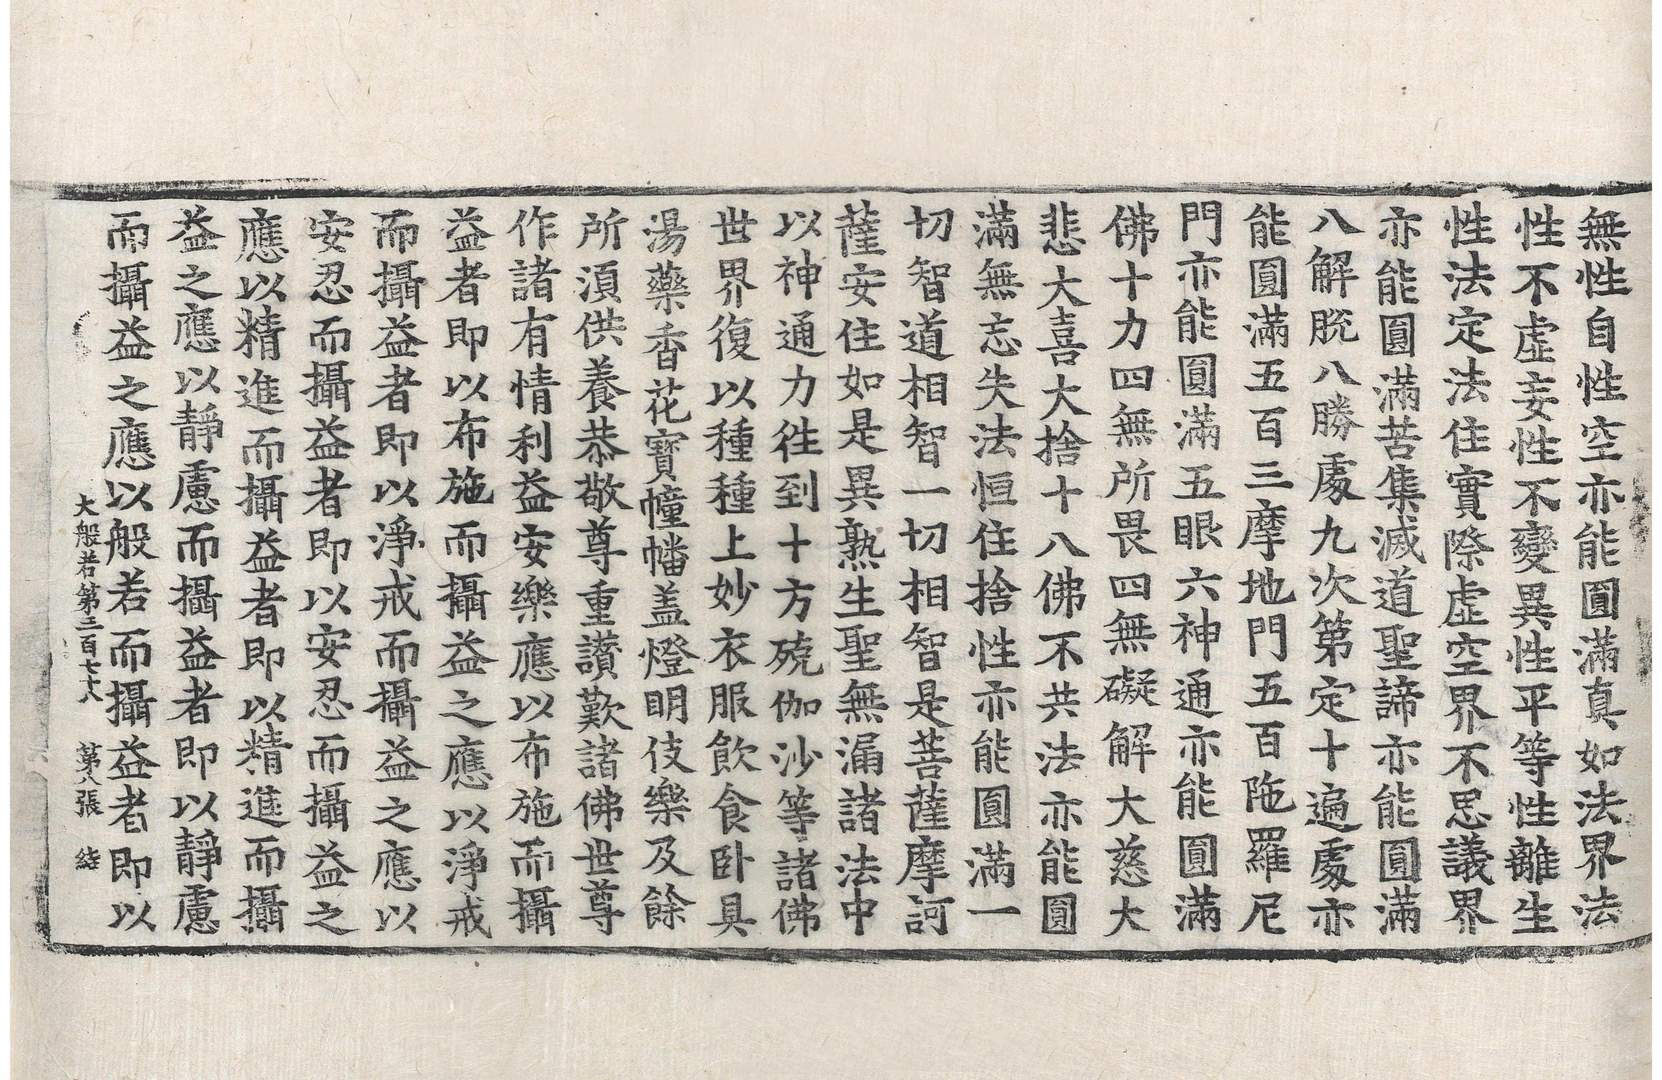 無性自性空亦能圓滿真如法界法
性不虛妄性不變異性平等性離生
性法定法住實際虛空界不思議界
亦能圓滿苦集滅道聖諦亦能圓滿
八解脫八勝處九次第定十遍處亦
能圓滿五百三摩地門五百陁羅尼
門亦能圓滿五眼六神通亦能圓滿
佛十力四無所畏四無礙解大慈大
悲大喜大捨十八佛不共法亦能圓
滿無忘失法恒住捨性亦能圓滿一
切智道相智一切相智是菩薩摩訶
薩安住如是異熟生聖無漏諸法中
以神通力徃到十方殑伽沙等諸佛
世界復以種種上妙衣服飲食卧具
湯藥香花寶幢幡盖燈明伎樂及餘
所湏供養恭敬尊重讃歎諸佛世尊
作諸有情利益安樂應以布施而攝
益者即以布施而攝益之應以淨戒
而攝益者即以淨戒而攝益之應以
安忍而攝益者即以安忍而攝益之
應以精進而攝益者即以精進而攝
益之應以靜慮而攝益者即以靜慮
而攝益之應以般若而攝益者即以
大般若第三百七十八 第八張